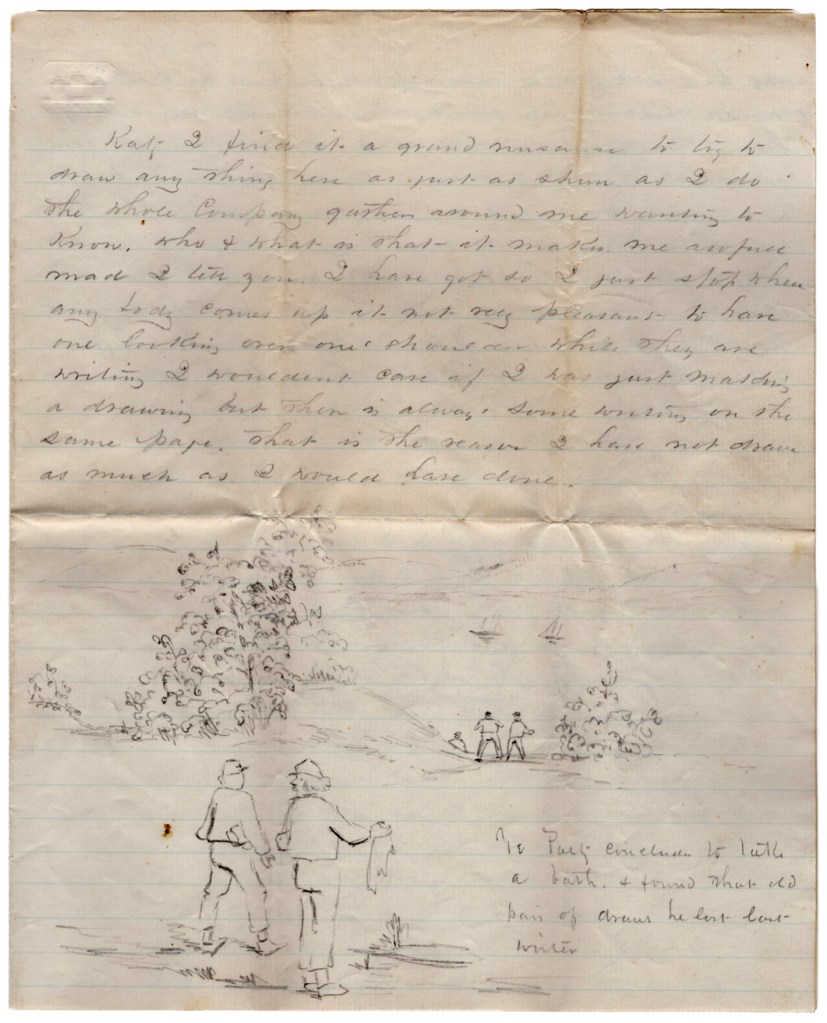 Katy I find it a grand nusance to try to
draw any thing here as just as shure as I do
the whole Company gathers around me wanting to
Know, who & what is that it makes me awfull
mad I tell you. I have got so I just stop when
any body comes up it not very pleasant to have
one looking over one's shoulder while they are
writing I wouldent care if I was just making
a drawing but there is always some writing on the
same page. that is the reason I have not drawn
as much as I would have done.
Ye Party concludes to take
a bath. & found that old
pair of draws he lost last
winter